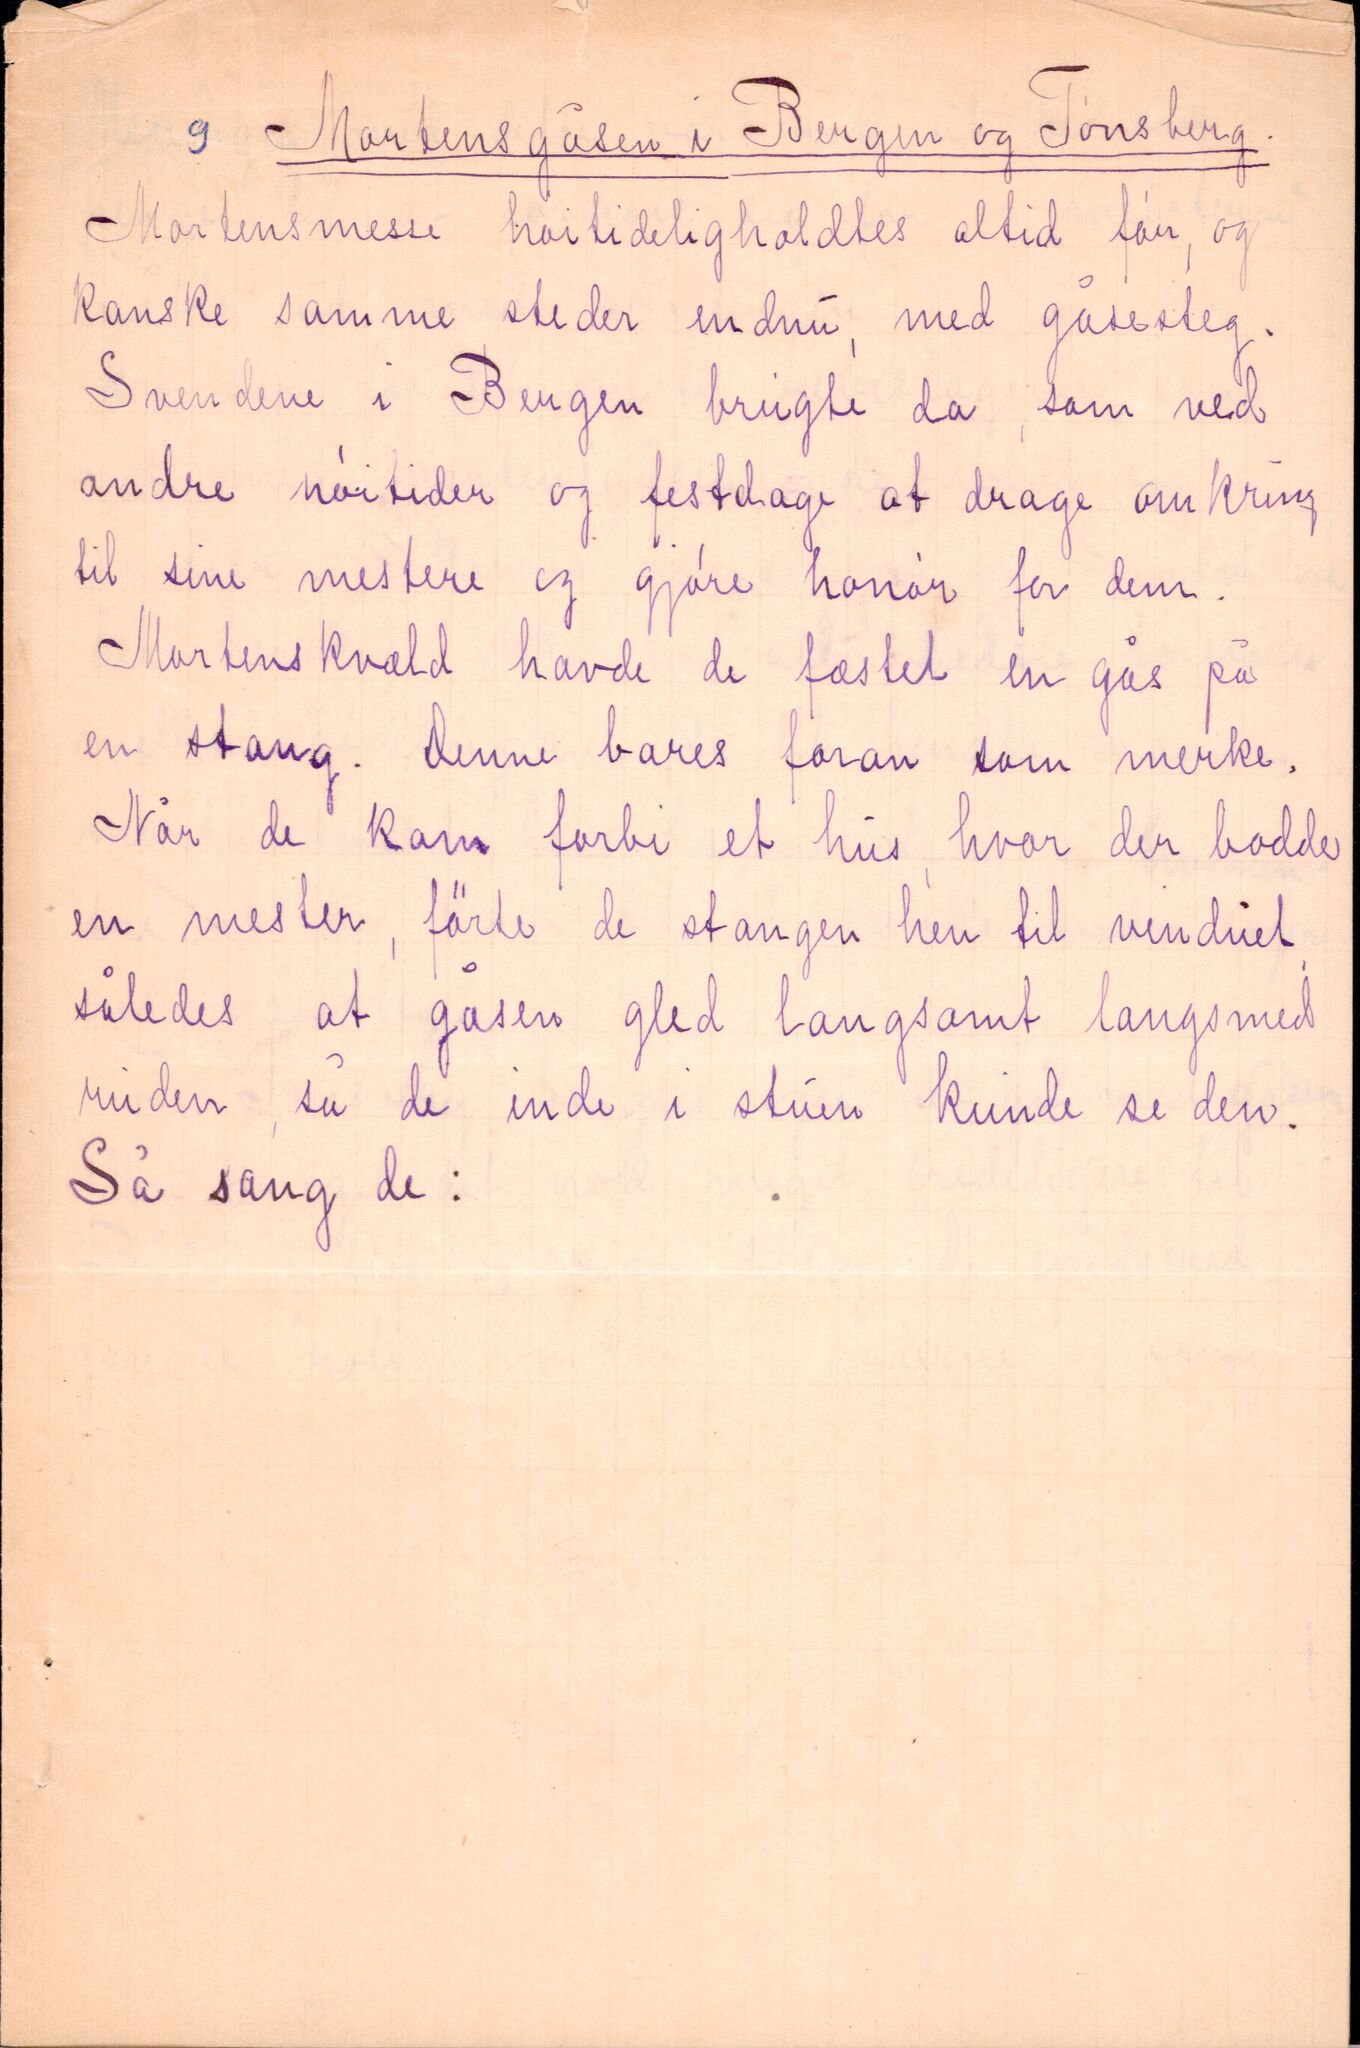 9 Mortensgåsen i Bergen og Tönsberg.
Mortensmesse höitideligholdtes altid för, og
kanske somme steder endnu, med gåsesteg.
Svendene i Bergen brugte da, som ved
andre höitider og festdage at drage omkring
til sine mestere og gjöre honör for dem.
Mortenskvæld havde de fæstet en gås på
en stang. Denne bares foran som merke.
Når de kom forbi et hus, hvor der bodde
en mester, förte de stangen hen til vinduet,
således at gåsen gled langsomt langsmed
ruden, så de inde i stuen kunde se den.
Så sang de: